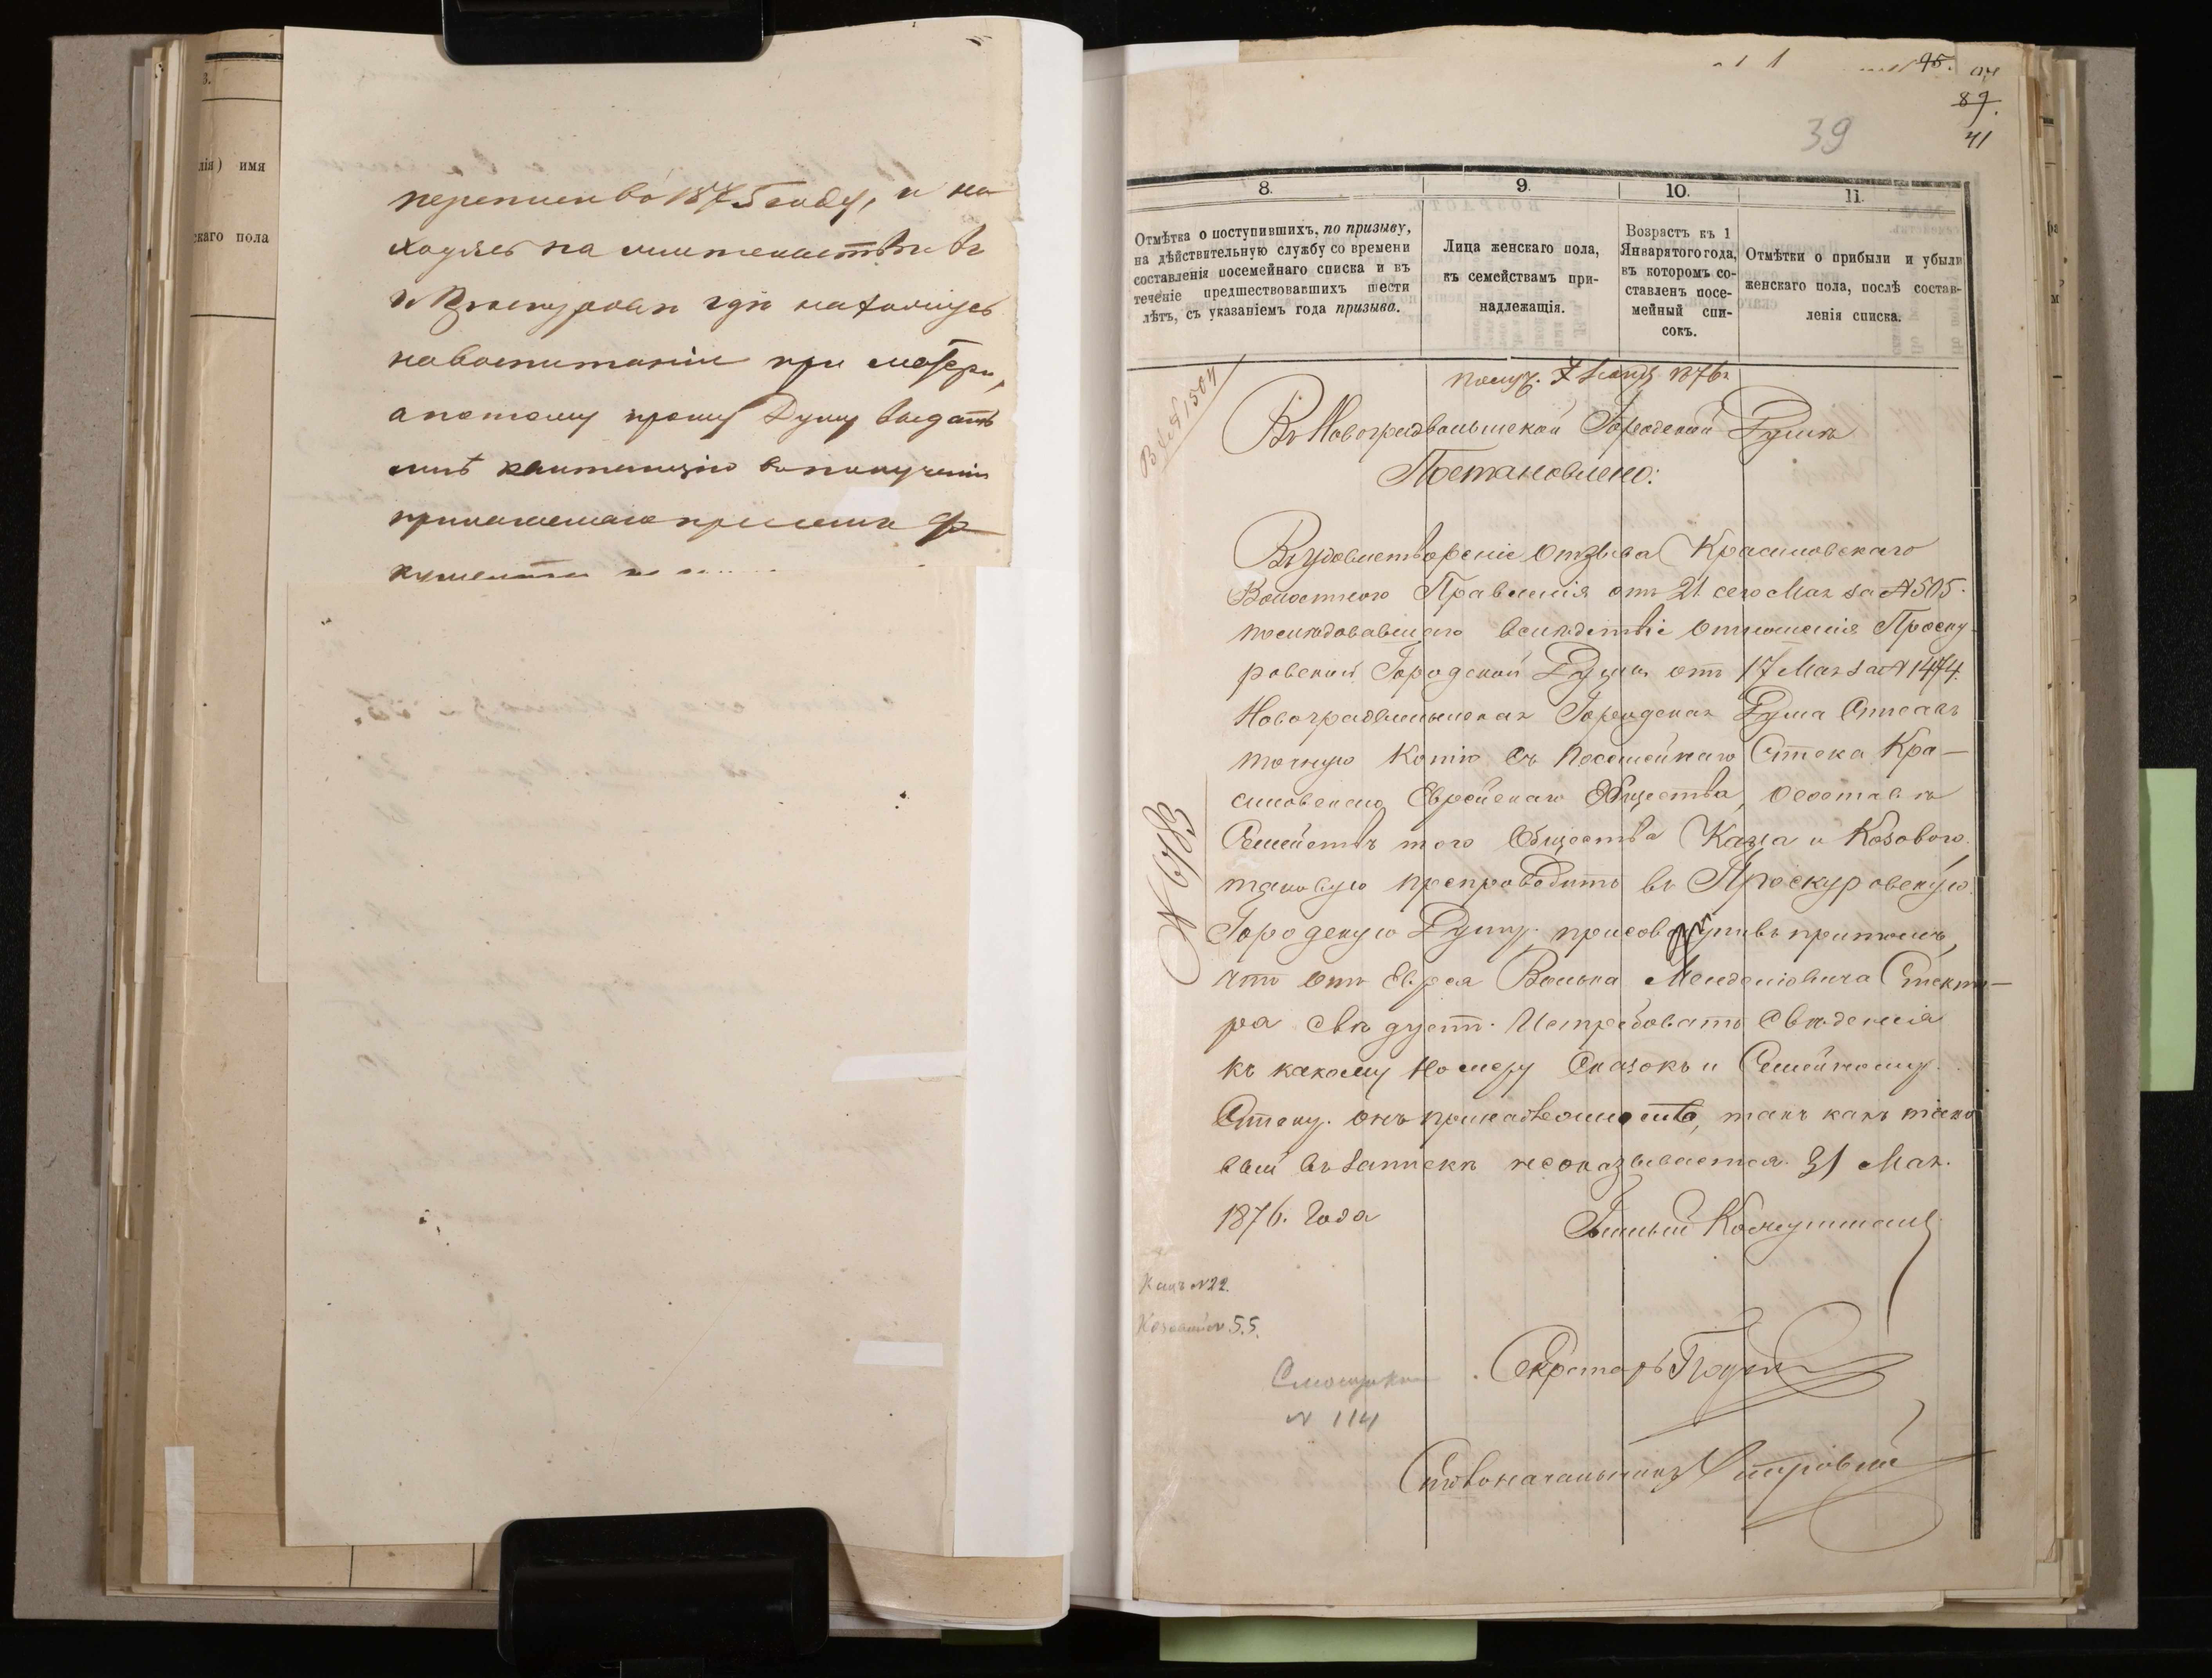 3.
лія) имя
скаго пола
переписи во 1875 году, и на
ходясь на жительстве въ
г. Проскурове где нахожусь
на воспитаніи при матери,
а потому прошу Думу выдать
мнѣ квитанцію в получении
прилагаемаго при семъ
95.
89.
41
39
8.
9.
10.
11.
Отмѣтка о поступившихъ, по призыву,
на дѣйствительную службу со времени
составленія посемейнаго списка и въ
теченіе предшествовавшихъ шести
лѣтъ, съ указаніемъ года призыва.
Лица женскаго пола,
къ семействамъ при-
надлежащія.
Возрастъ къ 1
Января того года,
въ которомъ со-
ставленъ посе-
мейный спи-
сокъ.
Отмѣтки о прибыли и убыли
женскаго пола, послѣ состав-
ленія списка.
1504
получ. 7 1876 г
Въ Новоградволынской Городской Думѣ
Постановлено:
Въ удовлетвореніе отзыва Красиловскаго
Волостного Правленія отъ 21 сего Мая за № 505.
последовавшаго вслѣдствіе отношенія Проску-
ровской Городской Думы отъ 17 Мая за № 1474
Новоградволынская Городская Дума
точную копію съ посемейнаго Списка Кра-
силовскаго Еврейскаго Общества, о составѣ
Семействъ того Общества Каца и Козового
таковую препроводить въ Проскуровскую
Городскую Думу. присовокупивъ притомъ,
что отъ Еврея Волька Менделіовича Спекто-
ра слѣдуетъ. Истребовать Сведенія
къ какому Номеру Сказокъ и Семейному
Списку. онъ принадлежитъ, такъ какъ тако
вый въ Записке неоказывается. 31 Мая.
1876. Года
№ 6783
Кацъ № 22.
Козовый № 55.
№ 114
Секретарь
Столоначальникъ